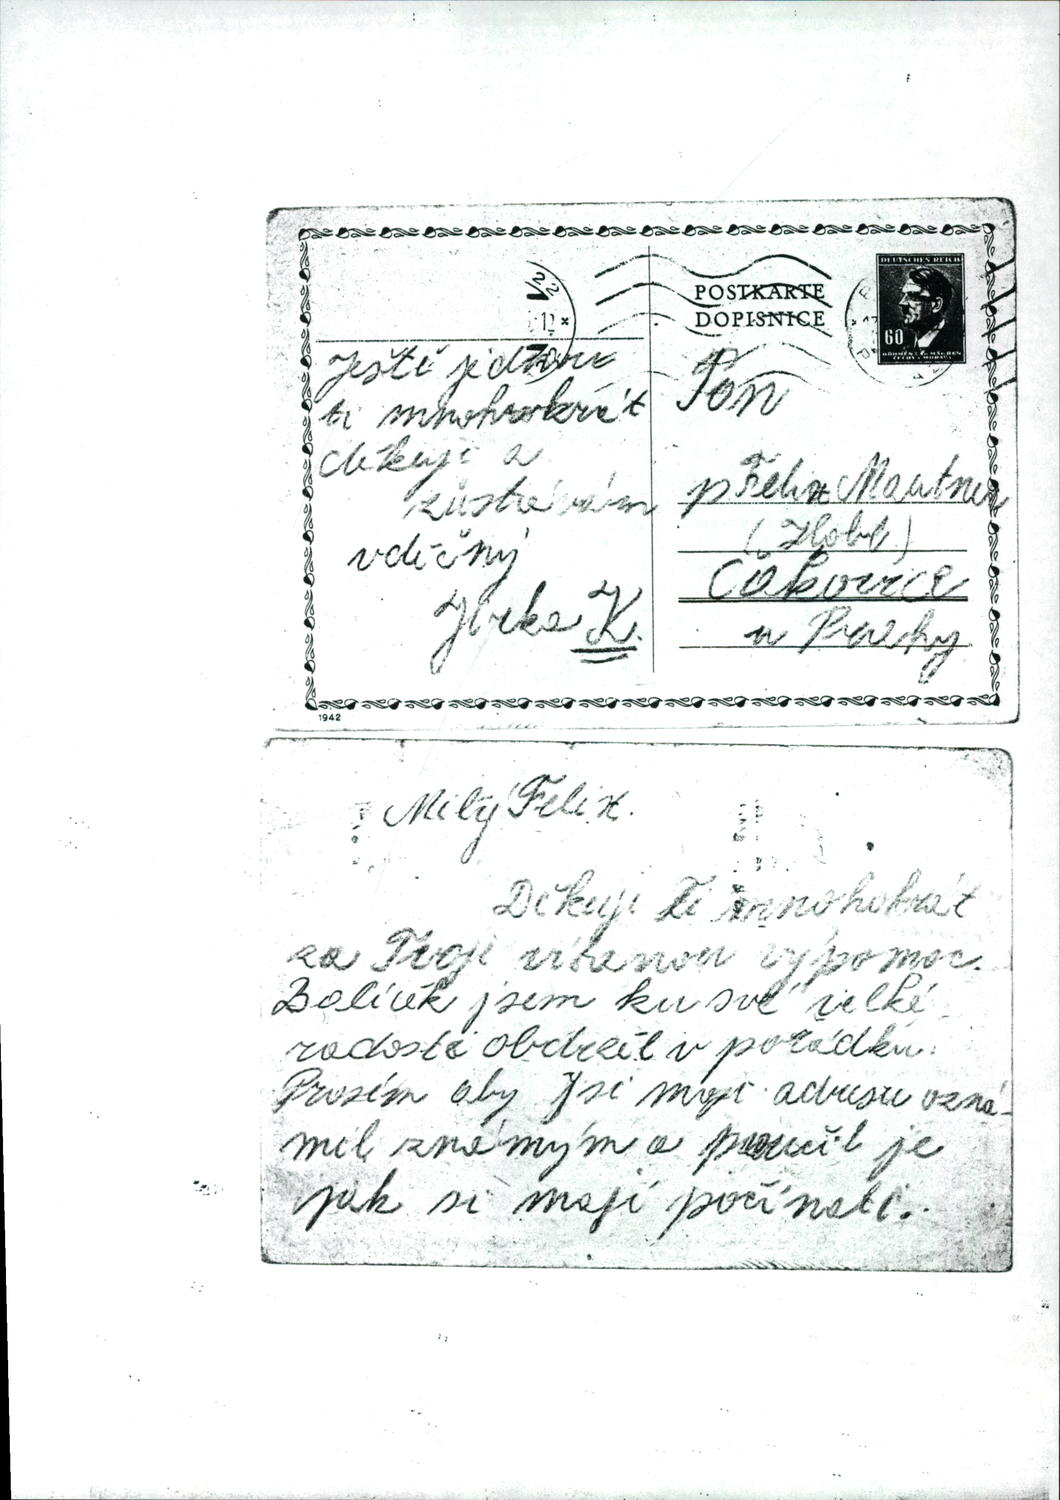 DEUTSCHES REICH
60
BÖHMEN u. MÄHREN
ČECHY a MORAVA
POSTKARTE
DOPISNICE
Ještě jednou
ti mnohrokrát
děkuji a
zůstávám
vděčný
Jirka K.
Pan
p Felix Mautner
Čakovice
u Prahy
1942
Milý Felix.
Děkuji Ti mnohokrát
za Tvoji vřelanou výpomoc.
Balíček jsem ku své velké
radosti obdržel v pořádku.
Prosím aby Jsi moji adresu ozná-
mil známým a poučil je
jak si mají počínati..